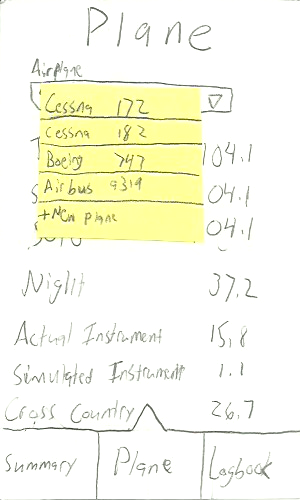 Plane
Airplane
Cessna 172
Cessna 182
Boeing 747
Airbus a319
+New plane
104.1
04.1
04.1
Night 37.2
Actual Instrument 15.8
Simulated Instrument 1.1
Cross Country 26.7
Summary Plane Logbook